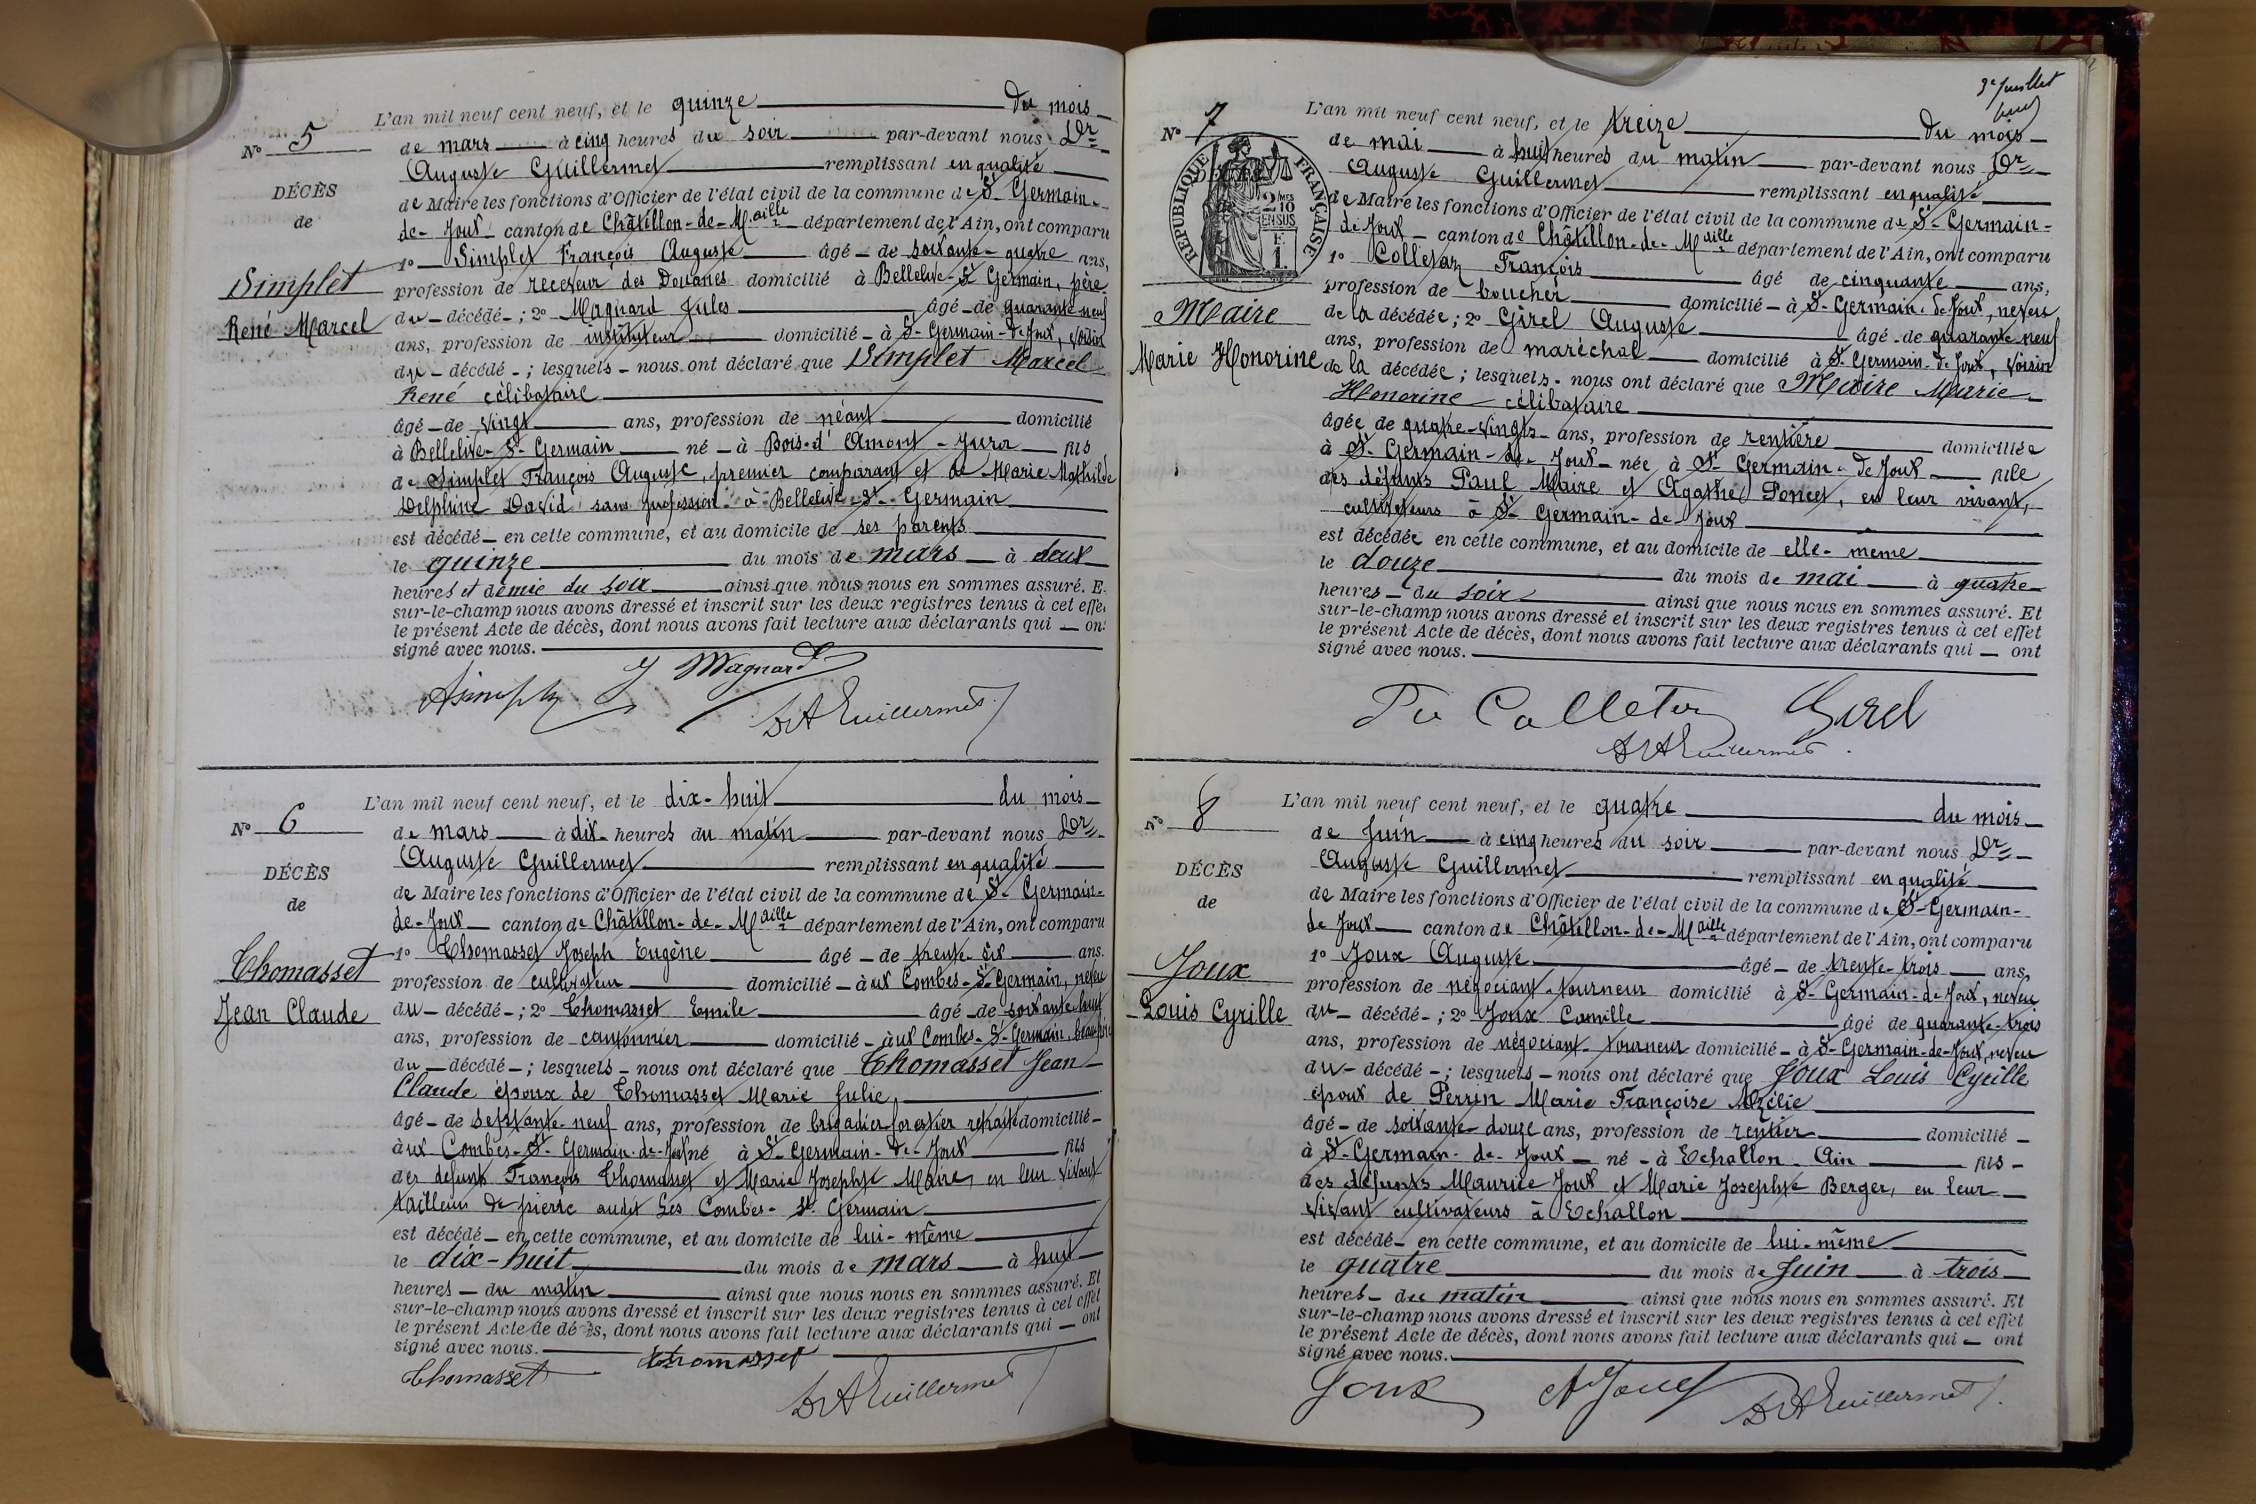 L'an mil neuf cent neuf, et le quinze du mois
N° 5
de mars à cinq heures du soir par-devant nous Dr
Auguste Guillermet remplissant en qualité
DÉCÈS
de Maire les fonctions d'Officier de l'état civil de la commune de St Germain-
de
de-Joux canton de Châtillon-de-Maille département de l'Ain, ont comparu
1° Simplet François Auguste âgé de soixante-quatre ans,
Simplet
profession de receveur des Douanes domicilié à Bellelive-St Germain, père
René Marcel
du décédé; 2° Magnard Jules âgé de quarante neuf
ans, profession de instituteur domicilié à St Germain-de Joux, voisin
du décédé; lesquels nous ont déclaré que Simplet Marcel
René célibataire
âgé de vingt ans, profession de néant domicilié
à Bellelive-St Germain né à Bois-d'Amont-Jura fils
de Simplet François Auguste, premier comparant et de Marie Mathilde
Delphine David sans profession à Bellelive-St-Germain
est décédé en cette commune, et au domicile de ses parents
le quinze du mois de mars à deux
heures et demie du soir ainsi que nous nous en sommes assuré. E
sur-le-champ nous avons dressé et inscrit sur les deux registres tenus à cet effe
le présent Acte de décès, dont nous avons fait lecture aux déclarants qui on
signé avec nous.
J Magnard
DrA Guillermet
L'an mil neuf cent neuf, et le dix-huit du mois
N° 6
de mars à dix heures du matin par-devant nous Dr
Auguste Guillermet remplissant en qualité
DÉCÈS
de Maire les fonctions d'Officier de l'état civil de la commune de St Germain-
de
de-Joux canton de Châtillon-de-Maille département de l'Ain, ont comparu
1° Thomasset Joseph Eugène âgé de trente six ans.
Thomasset
profession de cultivateur domicilié aux Combes-St Germain, neveu
Jean Claude
du décédé; 2° Thomasset Emile âgé de soixante huit
ans, profession de cantonnier domicilié aux Combes-St-Germain, beau frère
du décédé; lesquels nous ont déclaré que Thomasset Jean
Claude époux de Thomasset Marie Julie,
âgé de septante-neuf ans, profession de brigadier forestier retraité domicilié
aux Combes-St Germain-de-Joux né à St-Germain-de-Joux fils
des defunts François Thomasset et Marie Josephte Maire, en leur vivant
tailleurs de pierre audit Les Combes-St Germain
est décédé en cette commune, et au domicile de lui-même
le dix-huit du mois de mars à huit
heures du matin ainsi que nous nous en sommes assuré. Et
sur-le-champ nous avons dressé et inscrit sur les deux registres tenus à cet effet
le présent Acte de décès, dont nous avons fait lecture aux déclarants qui ont
signé avec nous.
Thomasset Thomasset
DrA Guillermet
3e Juillet
L'an mil neuf cent neuf, et le treize du mois
N° 7
de mai à huit heures du matin par-devant nous Dr
Auguste Guillermet remplissant en qualité
RÉPUBLIQUE FRANÇAISE
2 MES 10 EN SUS
F 1.
de Maire les fonctions d'Officier de l'état civil de la commune de St-Germain-
de Joux canton de Châtillon-de-Maille département de l'Ain, ont comparu
1° Colletaz François âgé de cinquante ans,
profession de boucher domicilié à St-Germain-de Joux, neveu
Maire
de la décédée; 2° Girel Auguste âgé de quarante neuf
ans, profession de maréchal domicilié à St Germain-de Joux, voisin
Marie Honorine
de la décédée; lesquels nous ont déclaré que Maire Marie
Honorine célibataire
âgée de quatre-vingts ans, profession de rentière domiciliée
à St Germain-de-Joux née à St Germain-de Joux fille
des défunts Paul Maire et Agathe Poncet, en leur vivant,
cultivateurs à St Germain-de-Joux
est décédée en cette commune, et au domicile de elle-même
le douze du mois de mai à quatre
heures du soir ainsi que nous nous en sommes assuré. Et
sur-le-champ nous avons dressé et inscrit sur les deux registres tenus à cet effet
le présent Acte de décès, dont nous avons fait lecture aux déclarants qui ont
signé avec nous.
Girel
DrA Guillermet
L'an mil neuf cent neuf, et le quatre du mois
N° 8
de Juin à cinq heures du soir par-devant nous Dr
Auguste Guillermet remplissant en qualité
DÉCÈS
de Maire les fonctions d'Officier de l'état civil de la commune de St-Germain-
de
de Joux canton de Châtillon-de-Maille département de l'Ain, ont comparu
1° Joux Auguste âgé de trente-trois ans,
Joux
profession de négociant-tourneur domicilié à St-Germain-de-Joux, neveu
Louis Cyrille
du décédé; 2° Joux Camille âgé de quarante-trois
ans, profession de négociant-tourneur domicilié à St-Germain-de-Joux, neveu
du décédé; lesquels nous ont déclaré que Joux Louis Cyrille
époux de Perrin Marie Françoise Alzélie
âgé de soixante-douze ans, profession de rentier domicilié
à St-Germain-de-Joux né à Echallon-Ain fils
des défunts Maurice Joux et Marie Josephte Berger, en leur
vivant cultivateurs à Echallon
est décédé en cette commune, et au domicile de lui-même
le quatre du mois de Juin à trois
heures du matin ainsi que nous nous en sommes assuré. Et
sur-le-champ nous avons dressé et inscrit sur les deux registres tenus à cet effet
le présent Acte de décès, dont nous avons fait lecture aux déclarants qui ont
signé avec nous.
Joux A Joux DrA Guillermet